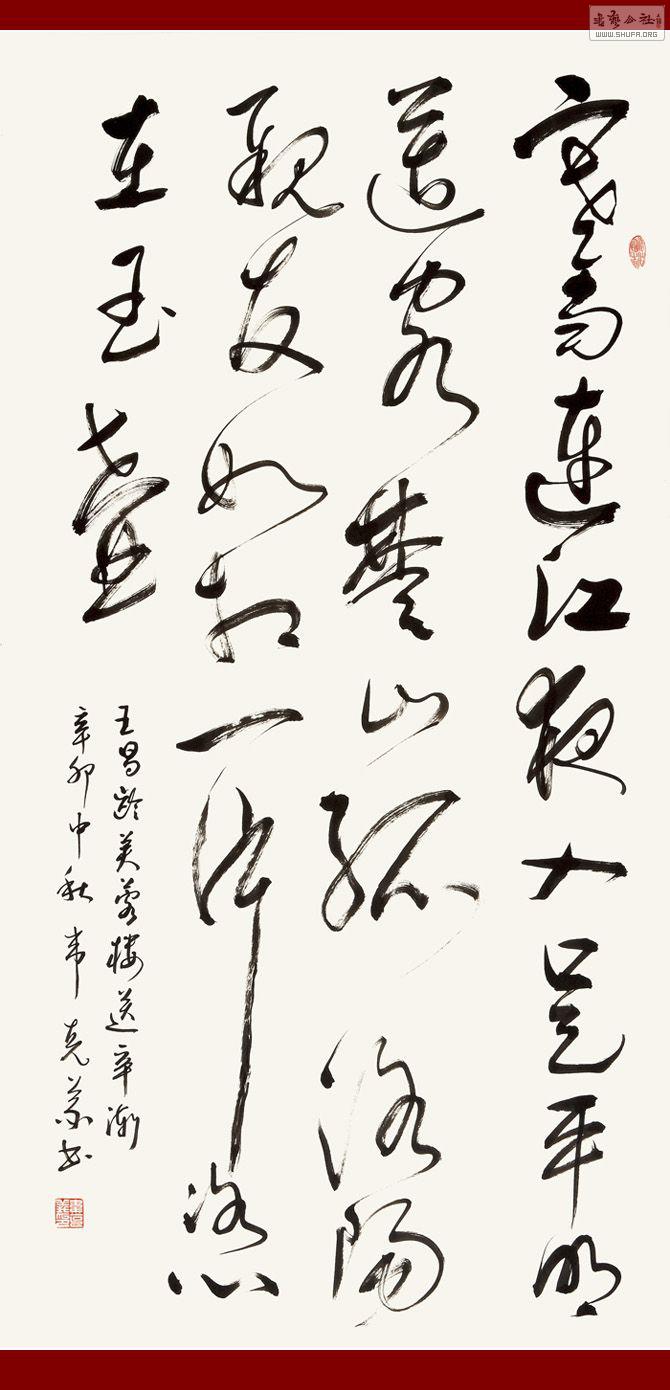 書藝公社
WWW.SHUFA.ORG
寒雨連江夜入吴平明
送客楚山孤洛陽
親友如相一片冰心
在玉壺
王昌龄芙蓉楼送辛渐
辛卯中秋韦克義书